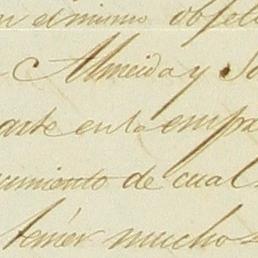 n el mismo obje
Almeida y So
arte en la emp
cumiento de cual
temer mucho